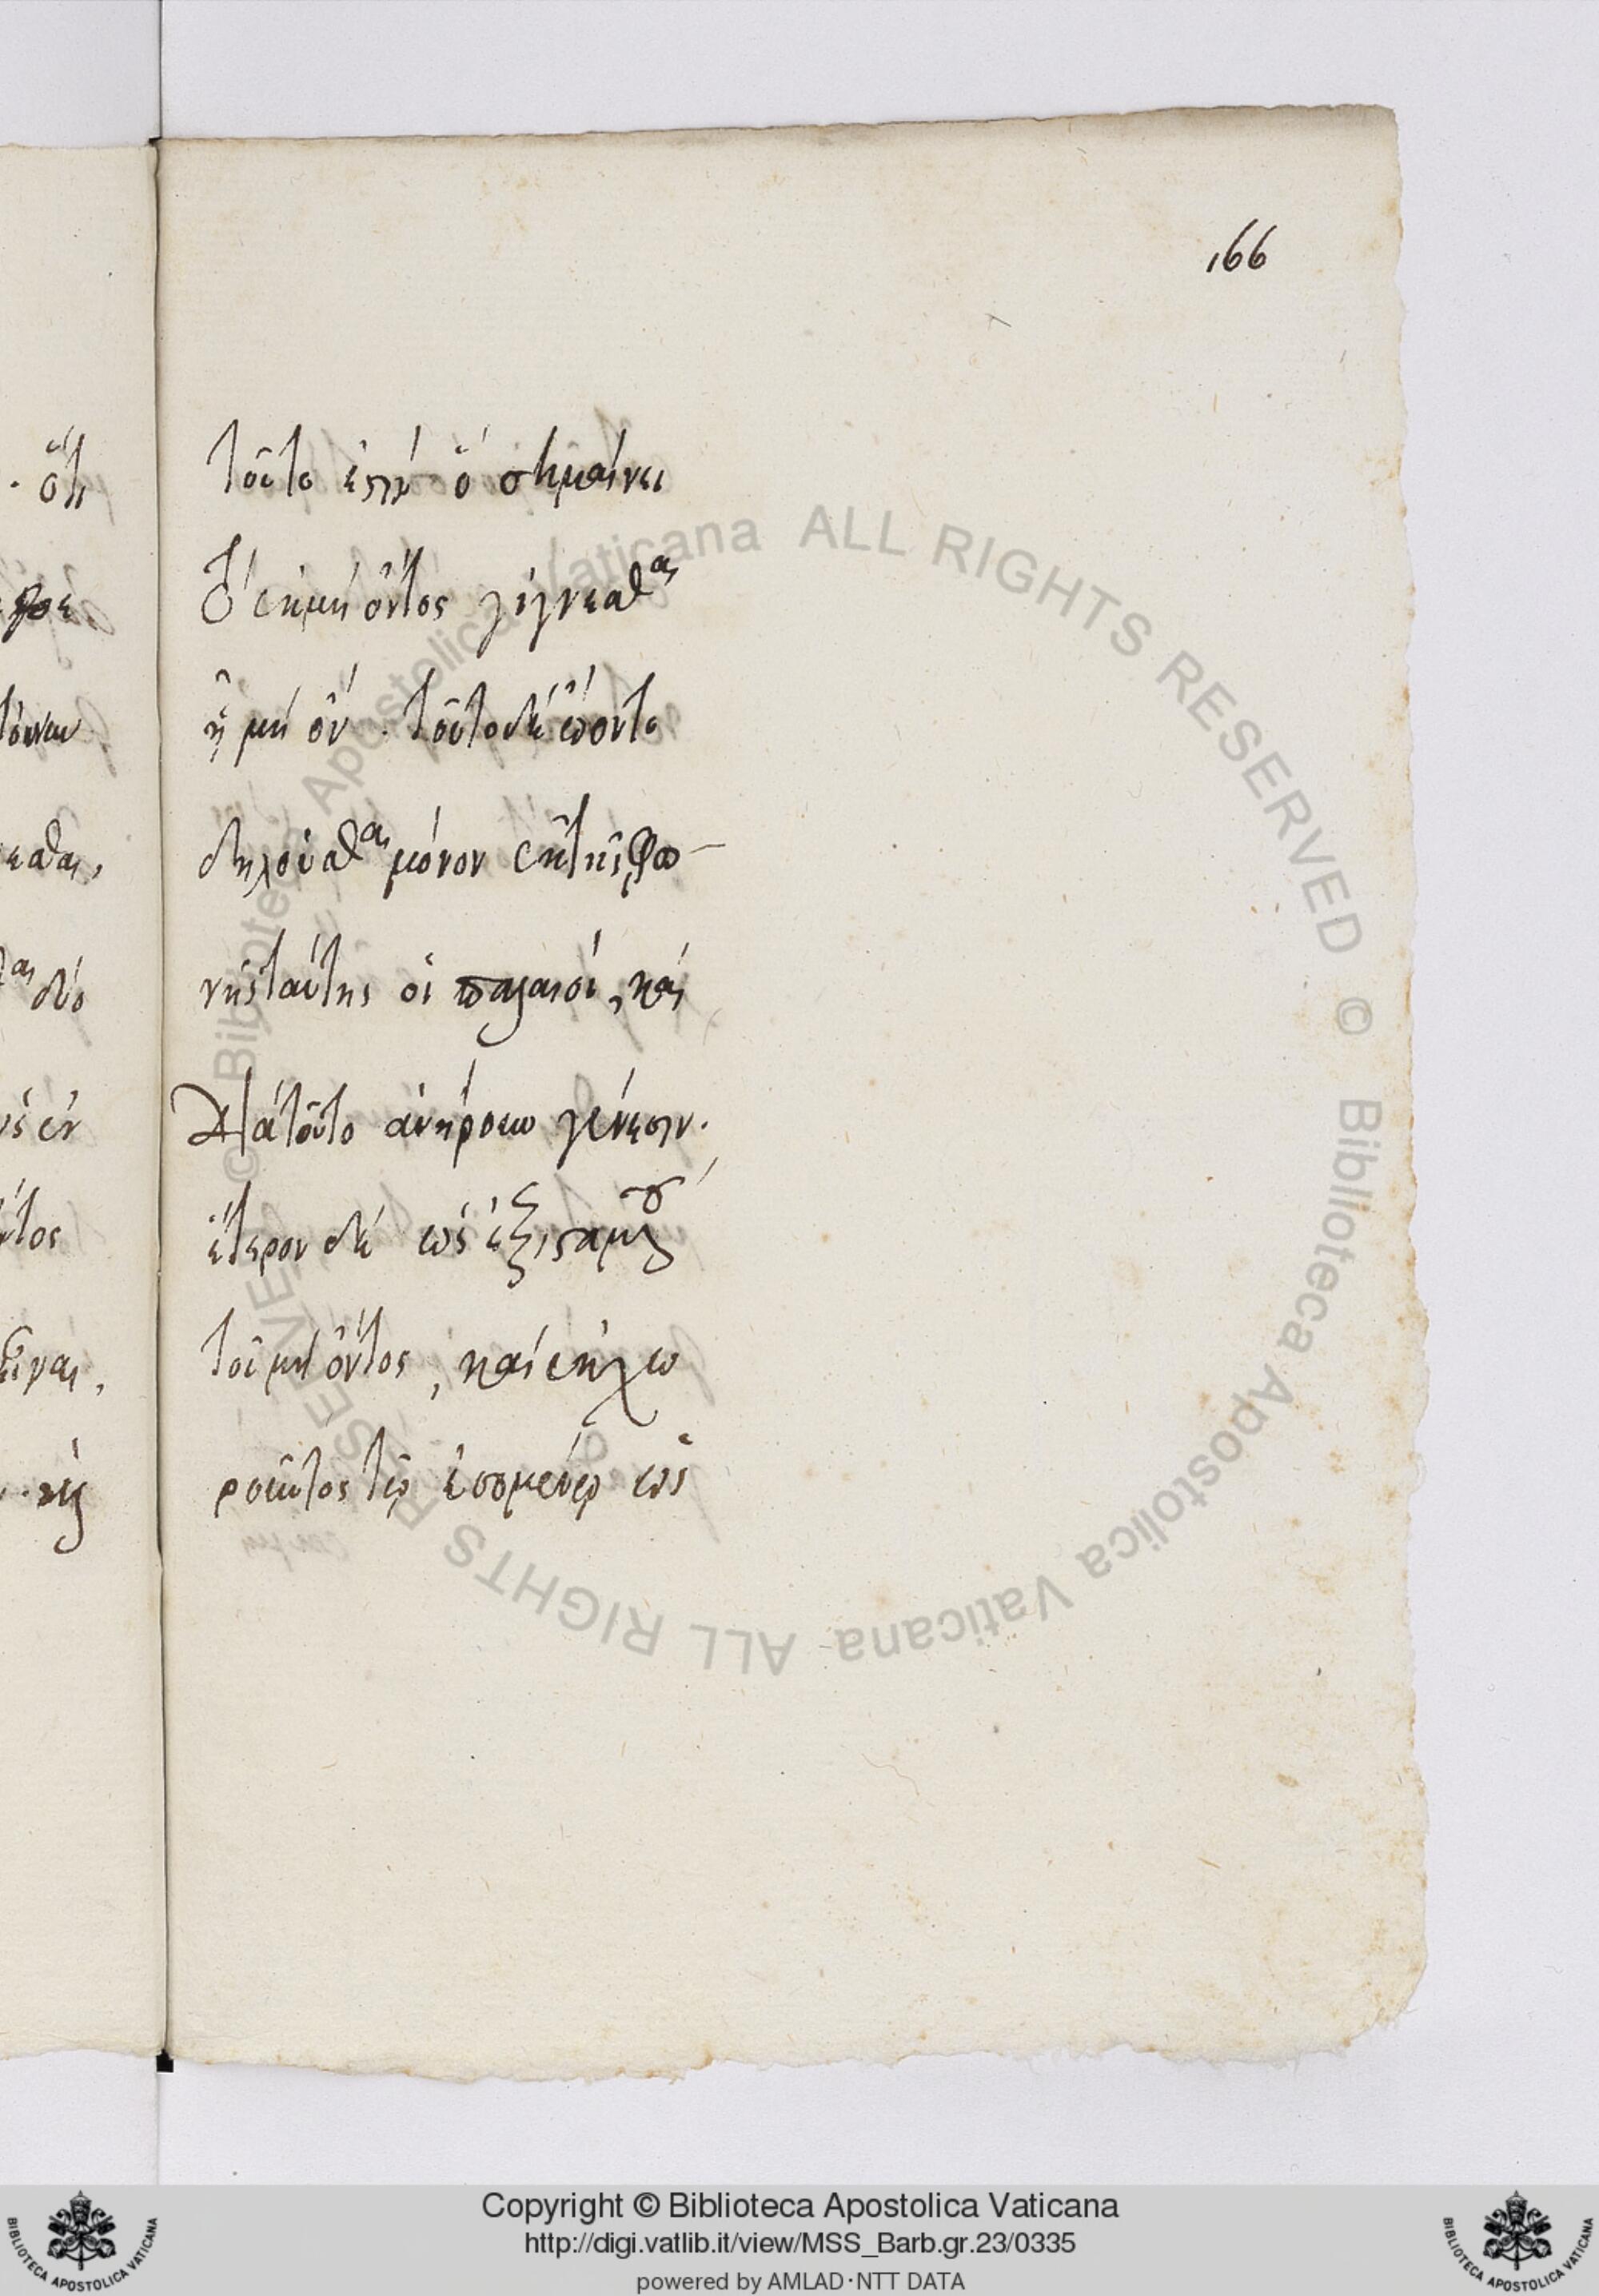 166
τοῦτο ἐστὶν ὃ σημαίνει
τὸ ἐκ μὴ ὄντος γίγνεσθαι
ᾗ μὴ ὄν. τοῦτο δὲ ᾤοντο
δηλοῦσθαι μόνον ἐκ τῆς φω-
νῆς ταύτης οἱ παλαιοί, καὶ
διὰ τοῦτο ἀνῄρουν γένεσιν.
ἕτερον δὲ ὡς ἐξισταμένου
τοῦ μὴ ὄντος, καὶ ἐκχω
ροῦντος τῷ ἐσομένῳ ὡς
ὅτι
δύο
ἐν
Copyright © Biblioteca Apostolica Vaticana
http://digi.vatlib.it/view/MSS_Barb.gr.23/0335
powered by AMLAD·NTT DATA
BIBLIOTECA APOSTOLICA VATICANA
BIBLIOTECA APOSTOLICA VATICANA
© Biblioteca Apostolica Vaticana ALL RIGHTS RESERVED © Biblioteca Apostolica Vaticana ALL RIGHTS RESERVED